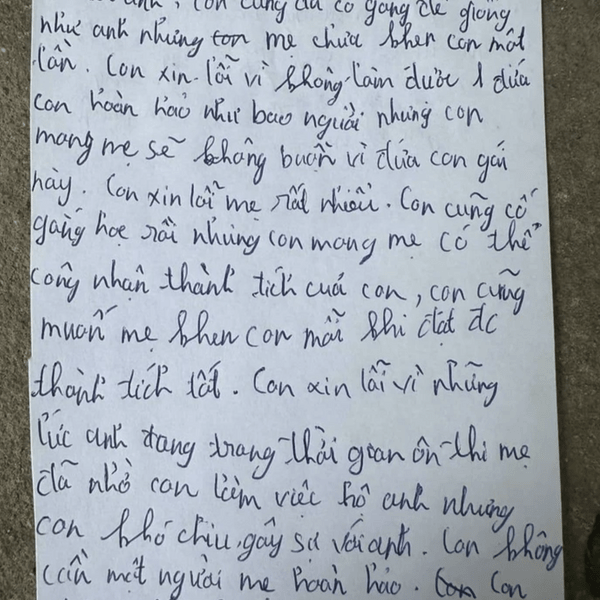 anh, con cũng đã cố gắng để giống
như anh nhưng con mẹ chưa khen con một
lần. Con xin lỗi vì không làm được 1 đứa
con hoàn hảo như bao người nhưng con
mong mẹ sẽ không buồn vì đứa con gái
này. Con xin lỗi mẹ rất nhiều. Con cũng cố
gắng học rồi nhưng con mong mẹ có thể
công nhận thành tích của con, con cũng
muốn mẹ khen con mỗi khi đạt đc
thành tích tốt. Con xin lỗi vì những
lúc anh đang trong thời gian ôn thi mẹ
đã nhờ con làm việc hộ anh nhưng
con khó chịu gây sự với anh. Con không
cần một người mẹ hoàn hảo. Con Con